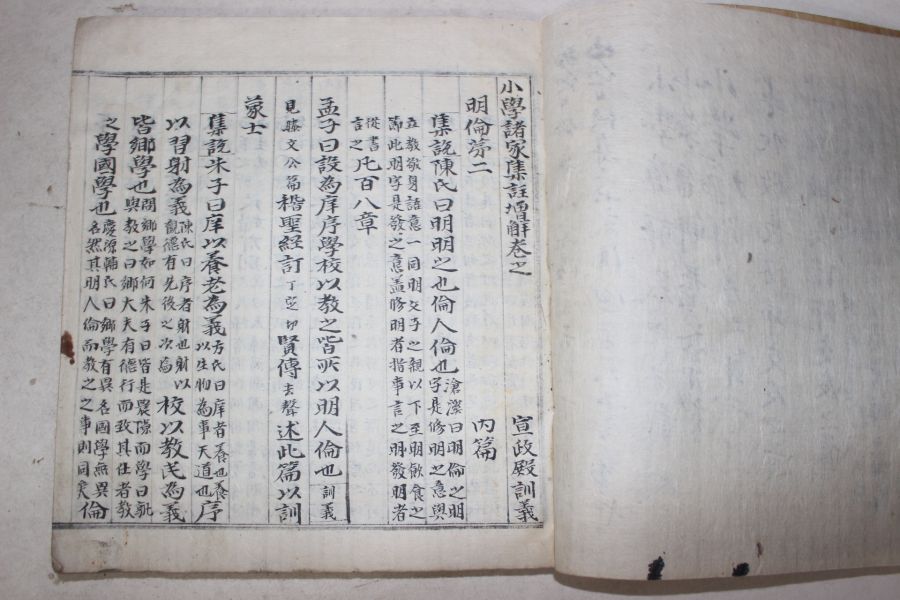 小學諸家集註增解卷之 宣政殿訓義
明倫第二 內篇
集說陳氏曰明明之也倫人倫也滄溪曰明倫之明字是修明之意與
立敎敬身語意一同明父子之親以下至明飮食之節此明字是發之意盖修明者指事言之明發明者
從書言之凡百八章
孟子曰設為庠序學校以教之皆所以明人倫也訓義
見滕文公篇稽聖經訂丁定切賢傳去聲述此篇以訓
蒙士
集說朱子曰庠以養老為義方氏曰庠者養也養以生物為事天道也序
以習射為義陳氏曰序者射也射以觀德有先後之次焉校以敎民為義
皆鄉學也問鄉學如何朱子曰皆是農隙而學曰孰與敎之曰鄉大夫有德行而致其仕者敎
之學國學也慶源輔氏曰鄉學有異名國學無異名然其明人倫而敎之之事則同矣倫